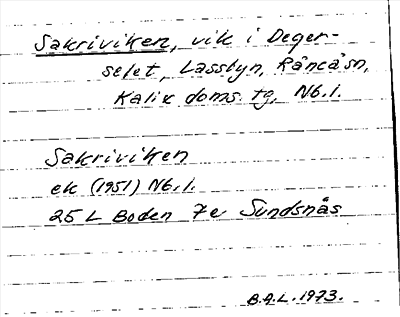 Sakriviken, vik i Deger-
selet, Lassbyn, Råneå sn,
Kalix doms. tg, Nb.l.
Sakriviken
ek (1951) Nb.l.
25 L Boden 7e Sundsnäs
B.A.L. 1973.